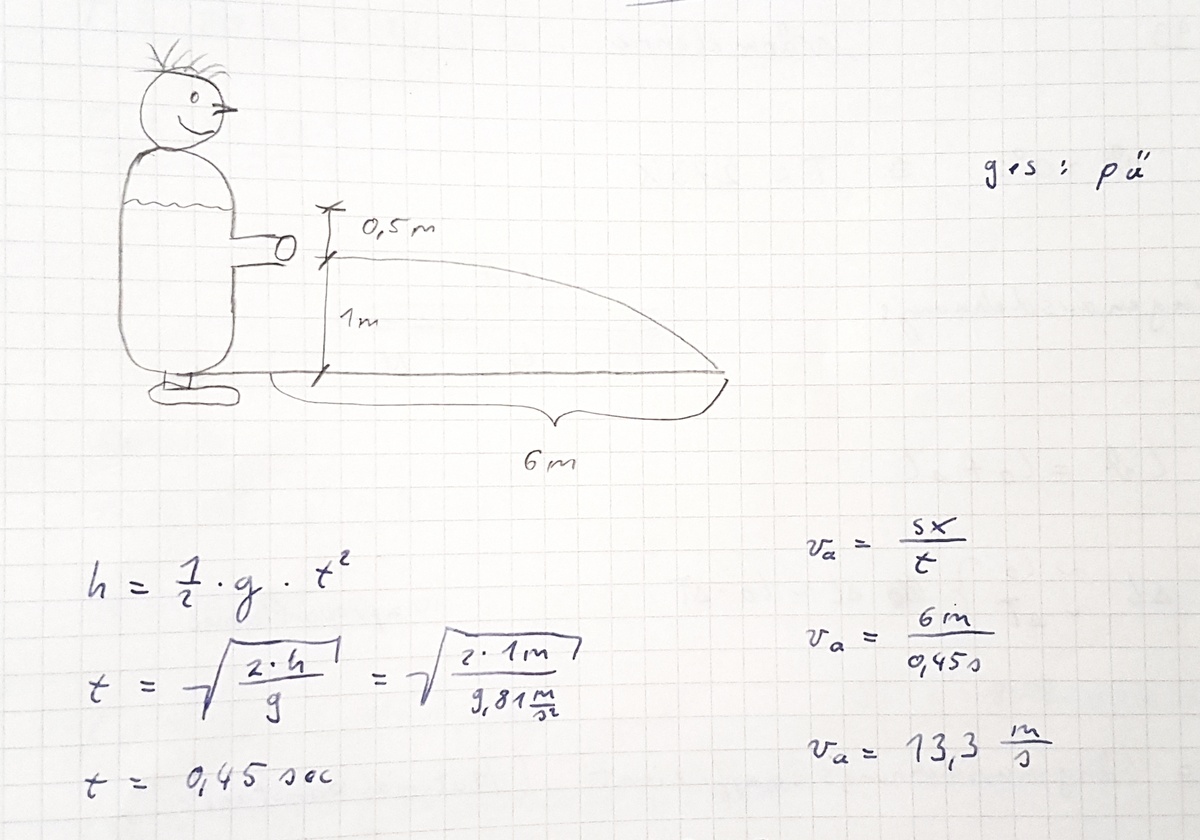 ges : pü
0,5 m
1m
6 m
h = 1/2 · g · t²
t = √(2·h/g) = √(2·1m/9,81 m/s²)
t = 0,45 sec
va = sx/t
va = 6m/0,45s
va = 13,3 m/s